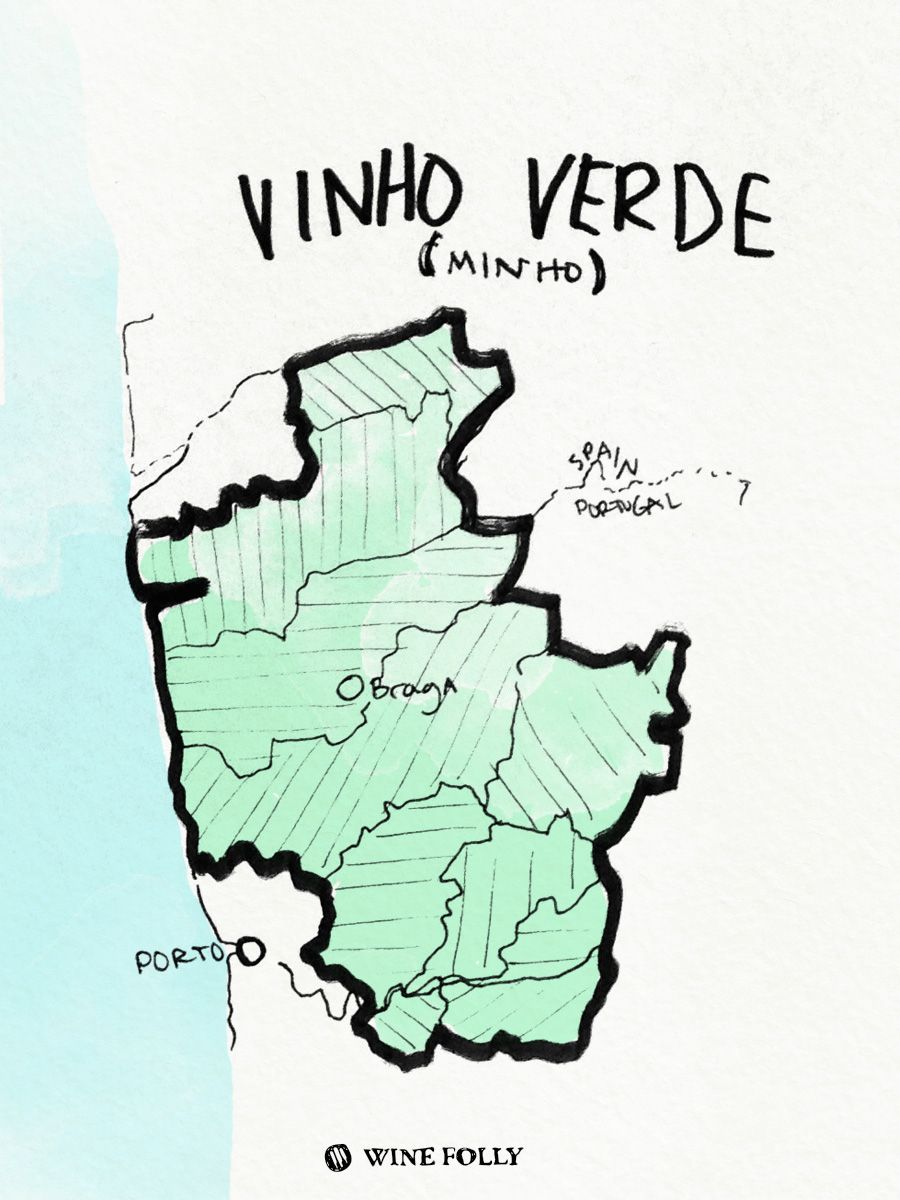 VINHO VERDE
(MINHO)
SPAIN
PORTUGAL
Braga
PORTO
WINE FOLLY